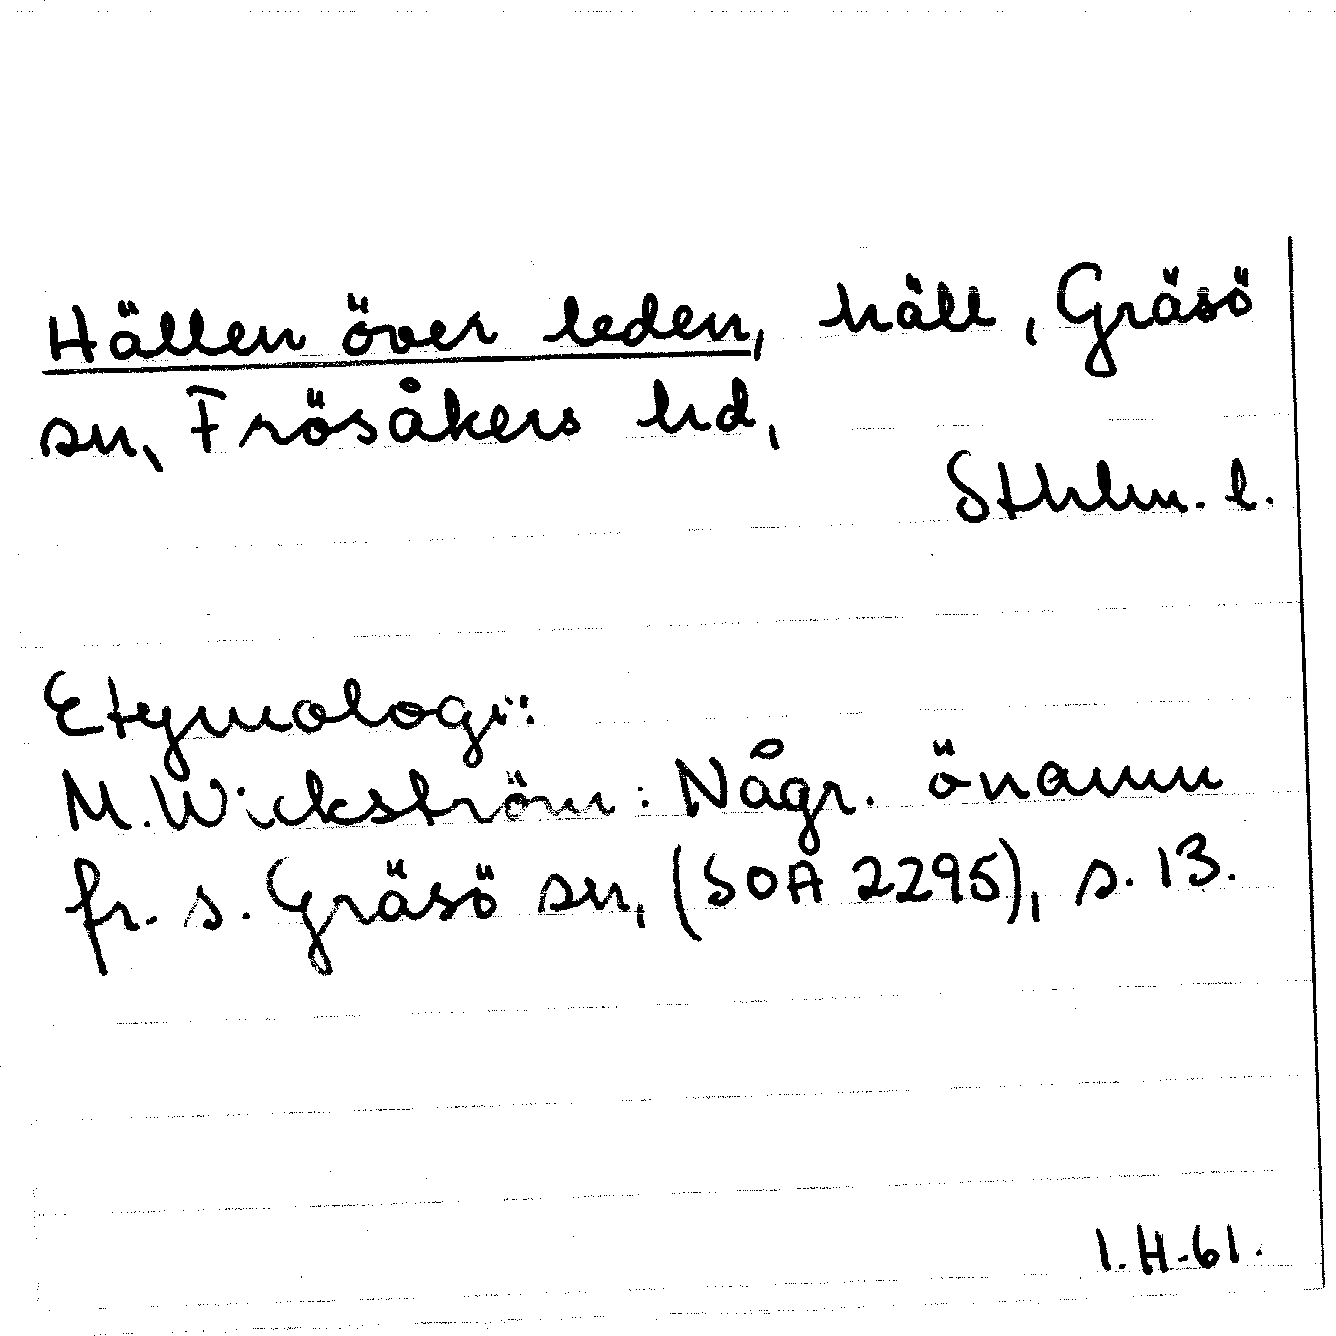 Hällen över leden, häll, Gräsö
sn, Frösåkers hd,
Sthlm. l.
Etymologi:
M. Wickström: Någr. önamn
fr. s. Gräsö sn, (SOA 2295), s. 13.
I.H.61.